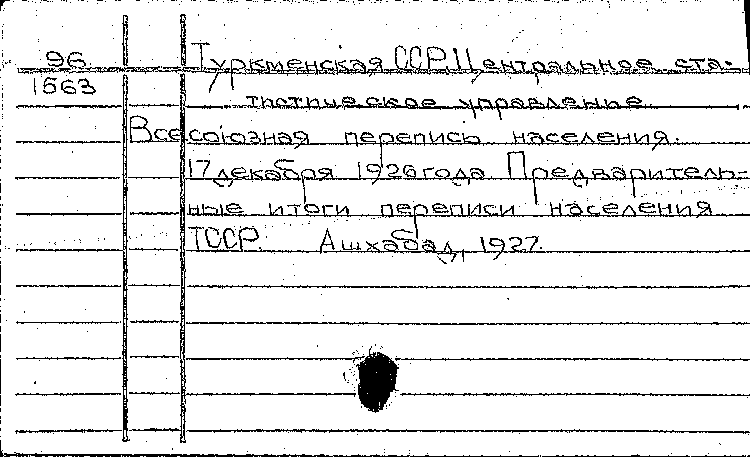 96
1563
Туркменская ССР. Центральное ста-
тистическое управление.
Всесоюзная перепись населения.
17 декабря 1926 года. Предваритель-
ные итоги переписи населения
ТССР. Ашхабад, 1927.